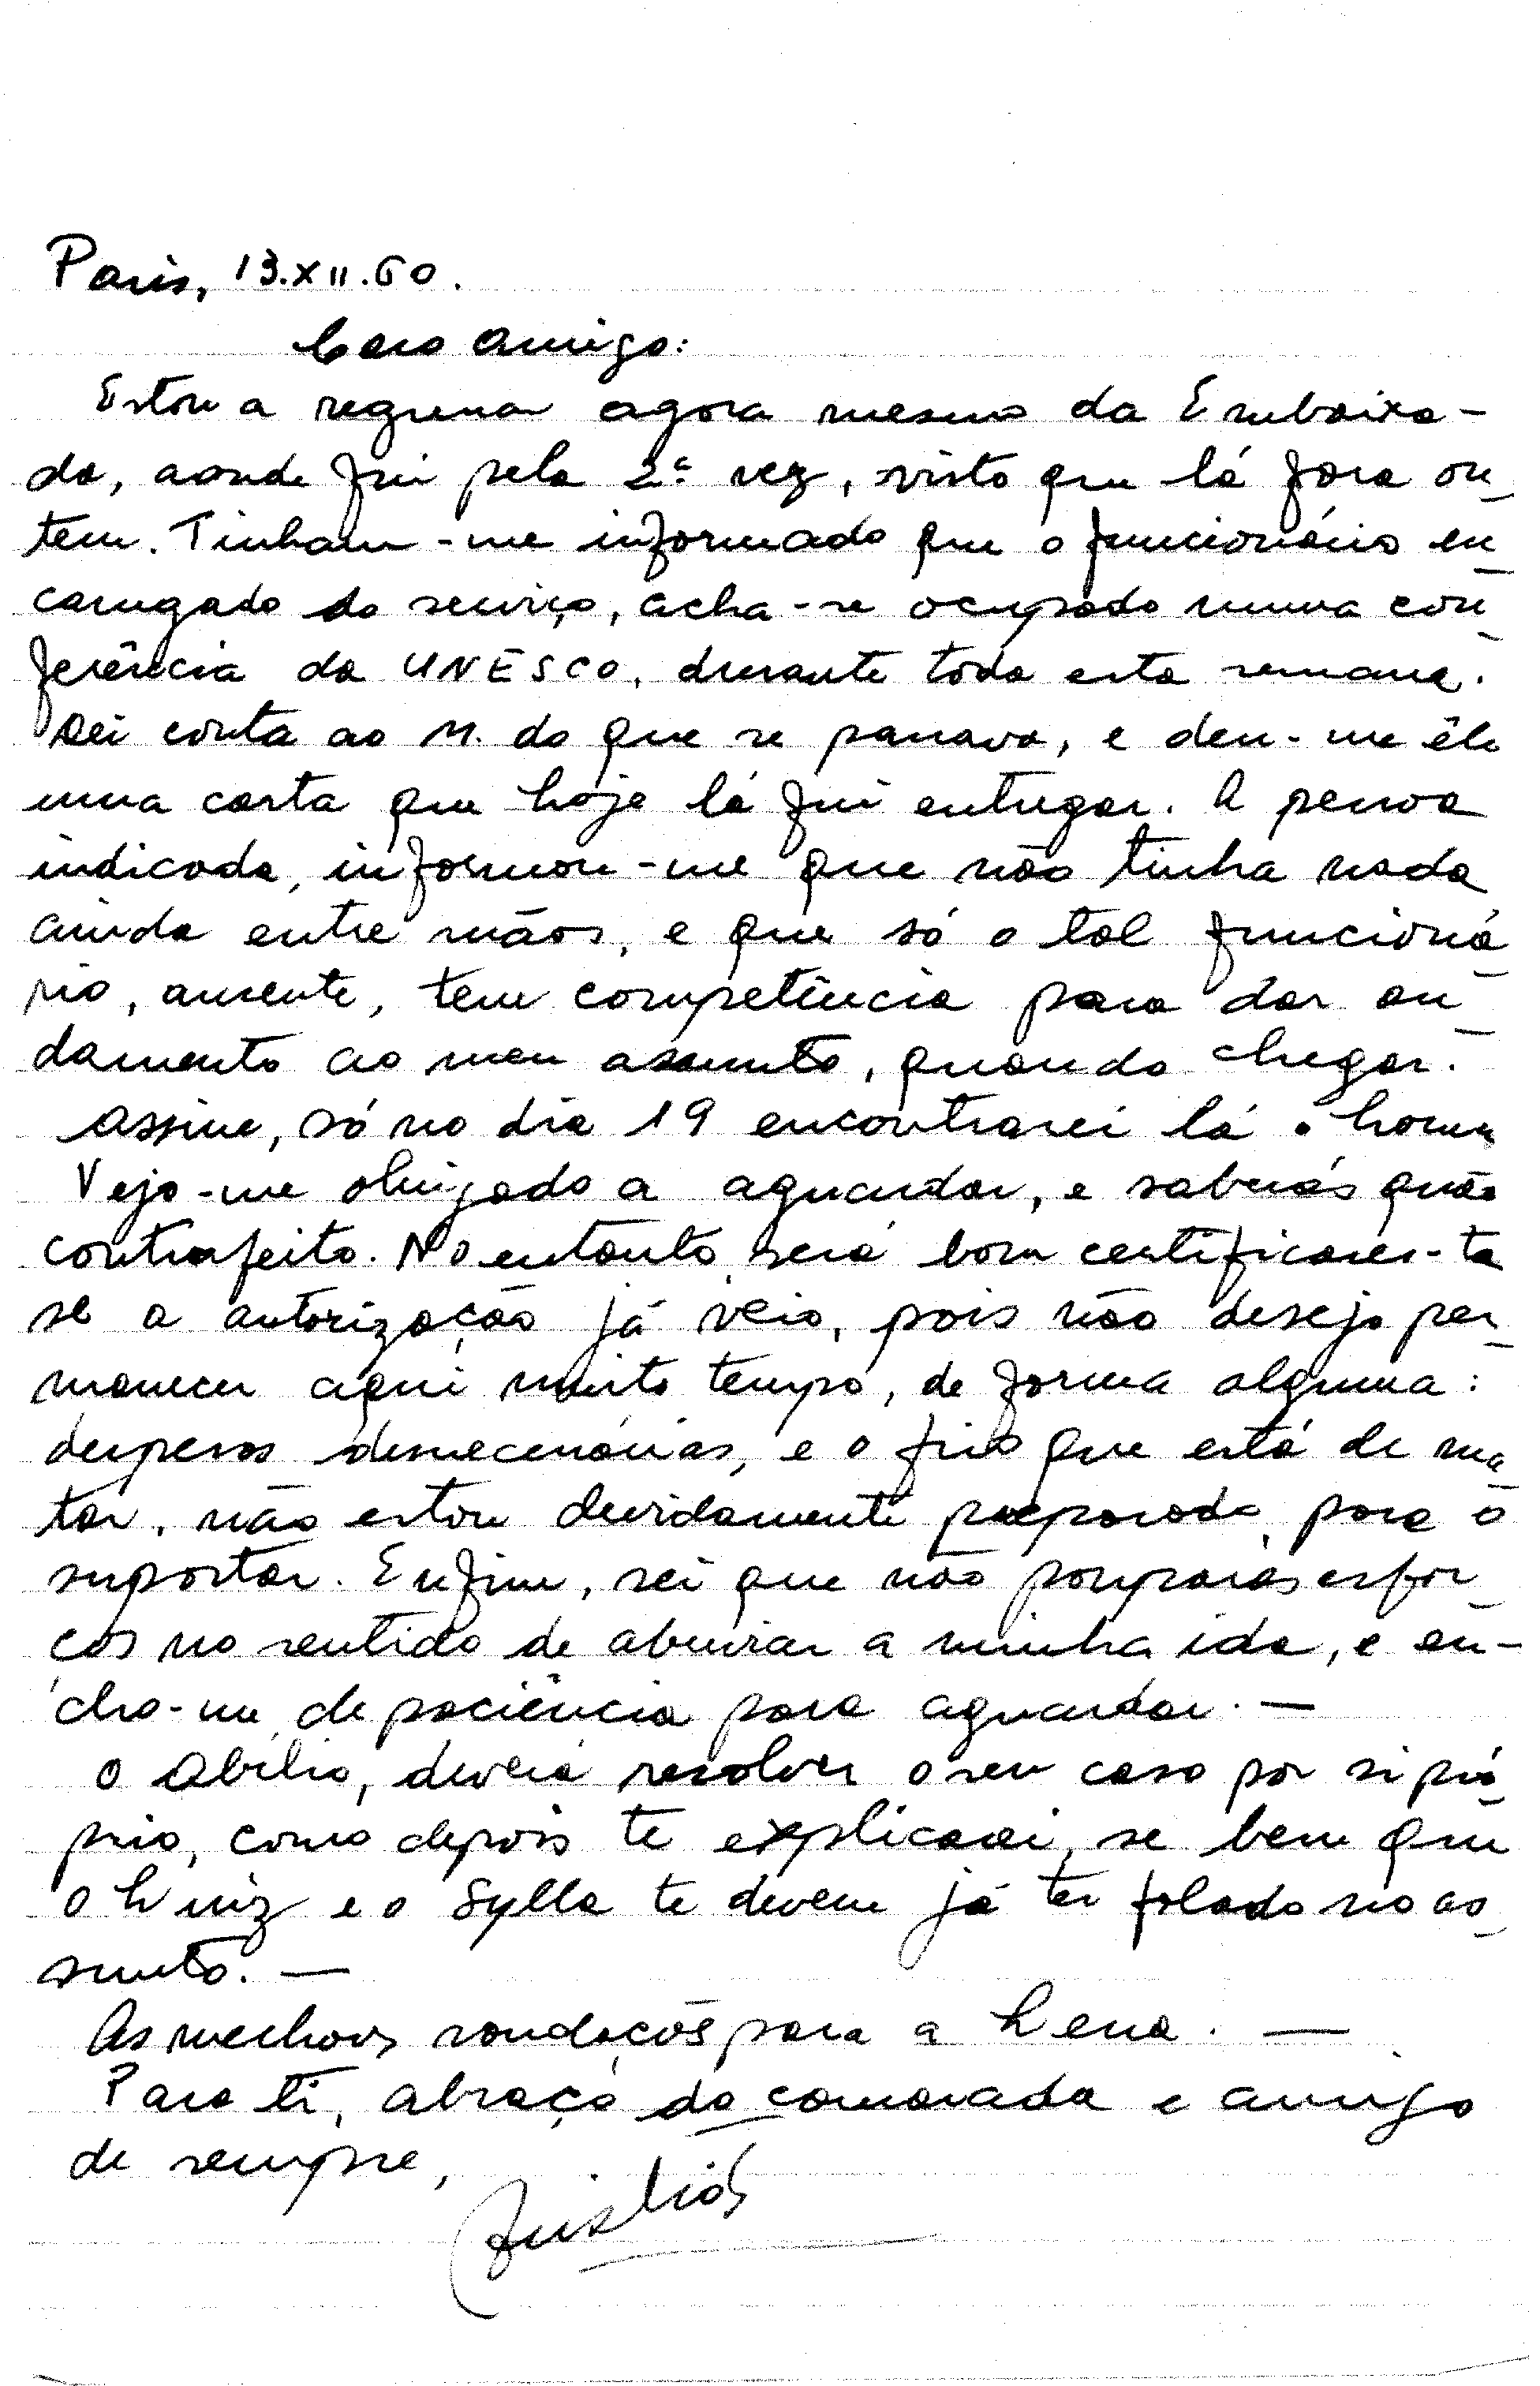 Paris, 13.XII.60.
Caro amigo:
Estou a regressar agora mesmo da Embaixa-
da, aonde fui pela 2ª vez, visto que lá fora on
tem. Tinham-me informado que o funcionário en
carregado do serviço, acha-se ocupado numa con
ferência da UNESCO, durante toda esta semana.
Dei conta ao M. do que se passava, e deu-me êle
uma carta que hoje lá fui entregar. A pessoa
indicada, informou-me que não tinha nada
ainda entre mãos, e que só o tal funcioná
rio, ausente, tem competência para dar an
damento ao meu assunto, quando chegar.
Assim, só no dia 19 encontrarei lá o homem
Vejo-me obrigado a aguardar, e saberás quão
contrafeito. No entanto será bom certificares-te
se a autorização já veio, pois não desejo per
manecer aqui muito tempo, de forma alguma:
despesas desnecessárias, e o frio que está de ma
tar, não estou devidamente preparado para o
suportar. Enfim, sei que não pouparás esfor
ços no sentido de abreviar a minha ida, e en-
cho-me de paciência para aguardar. —
O Abílio, deverá resolver o seu caso por si pró
prio, como depois te explicarei, se bem que
o Luiz e o Sylla te devem já ter falado no as
sunto. —
As melhores saudações para a Lena. —
Para ti, abraço do camarada e amigo
de sempre,